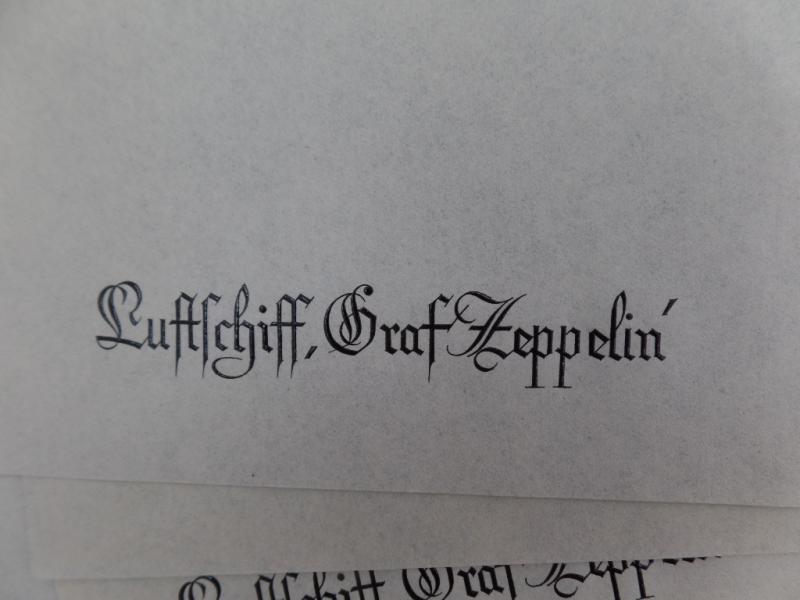 Luftschiff ‚Graf Zeppelin‘
Luftschiff ‚Graf Zeppelin